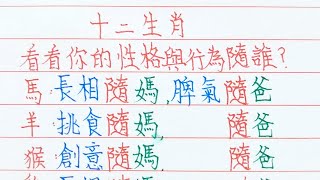 十二生肖
看看你的性格與行為隨誰?
馬:長相隨媽,脾氣隨爸
羊:挑食隨媽, 隨爸
猴:創意隨媽. 隨爸